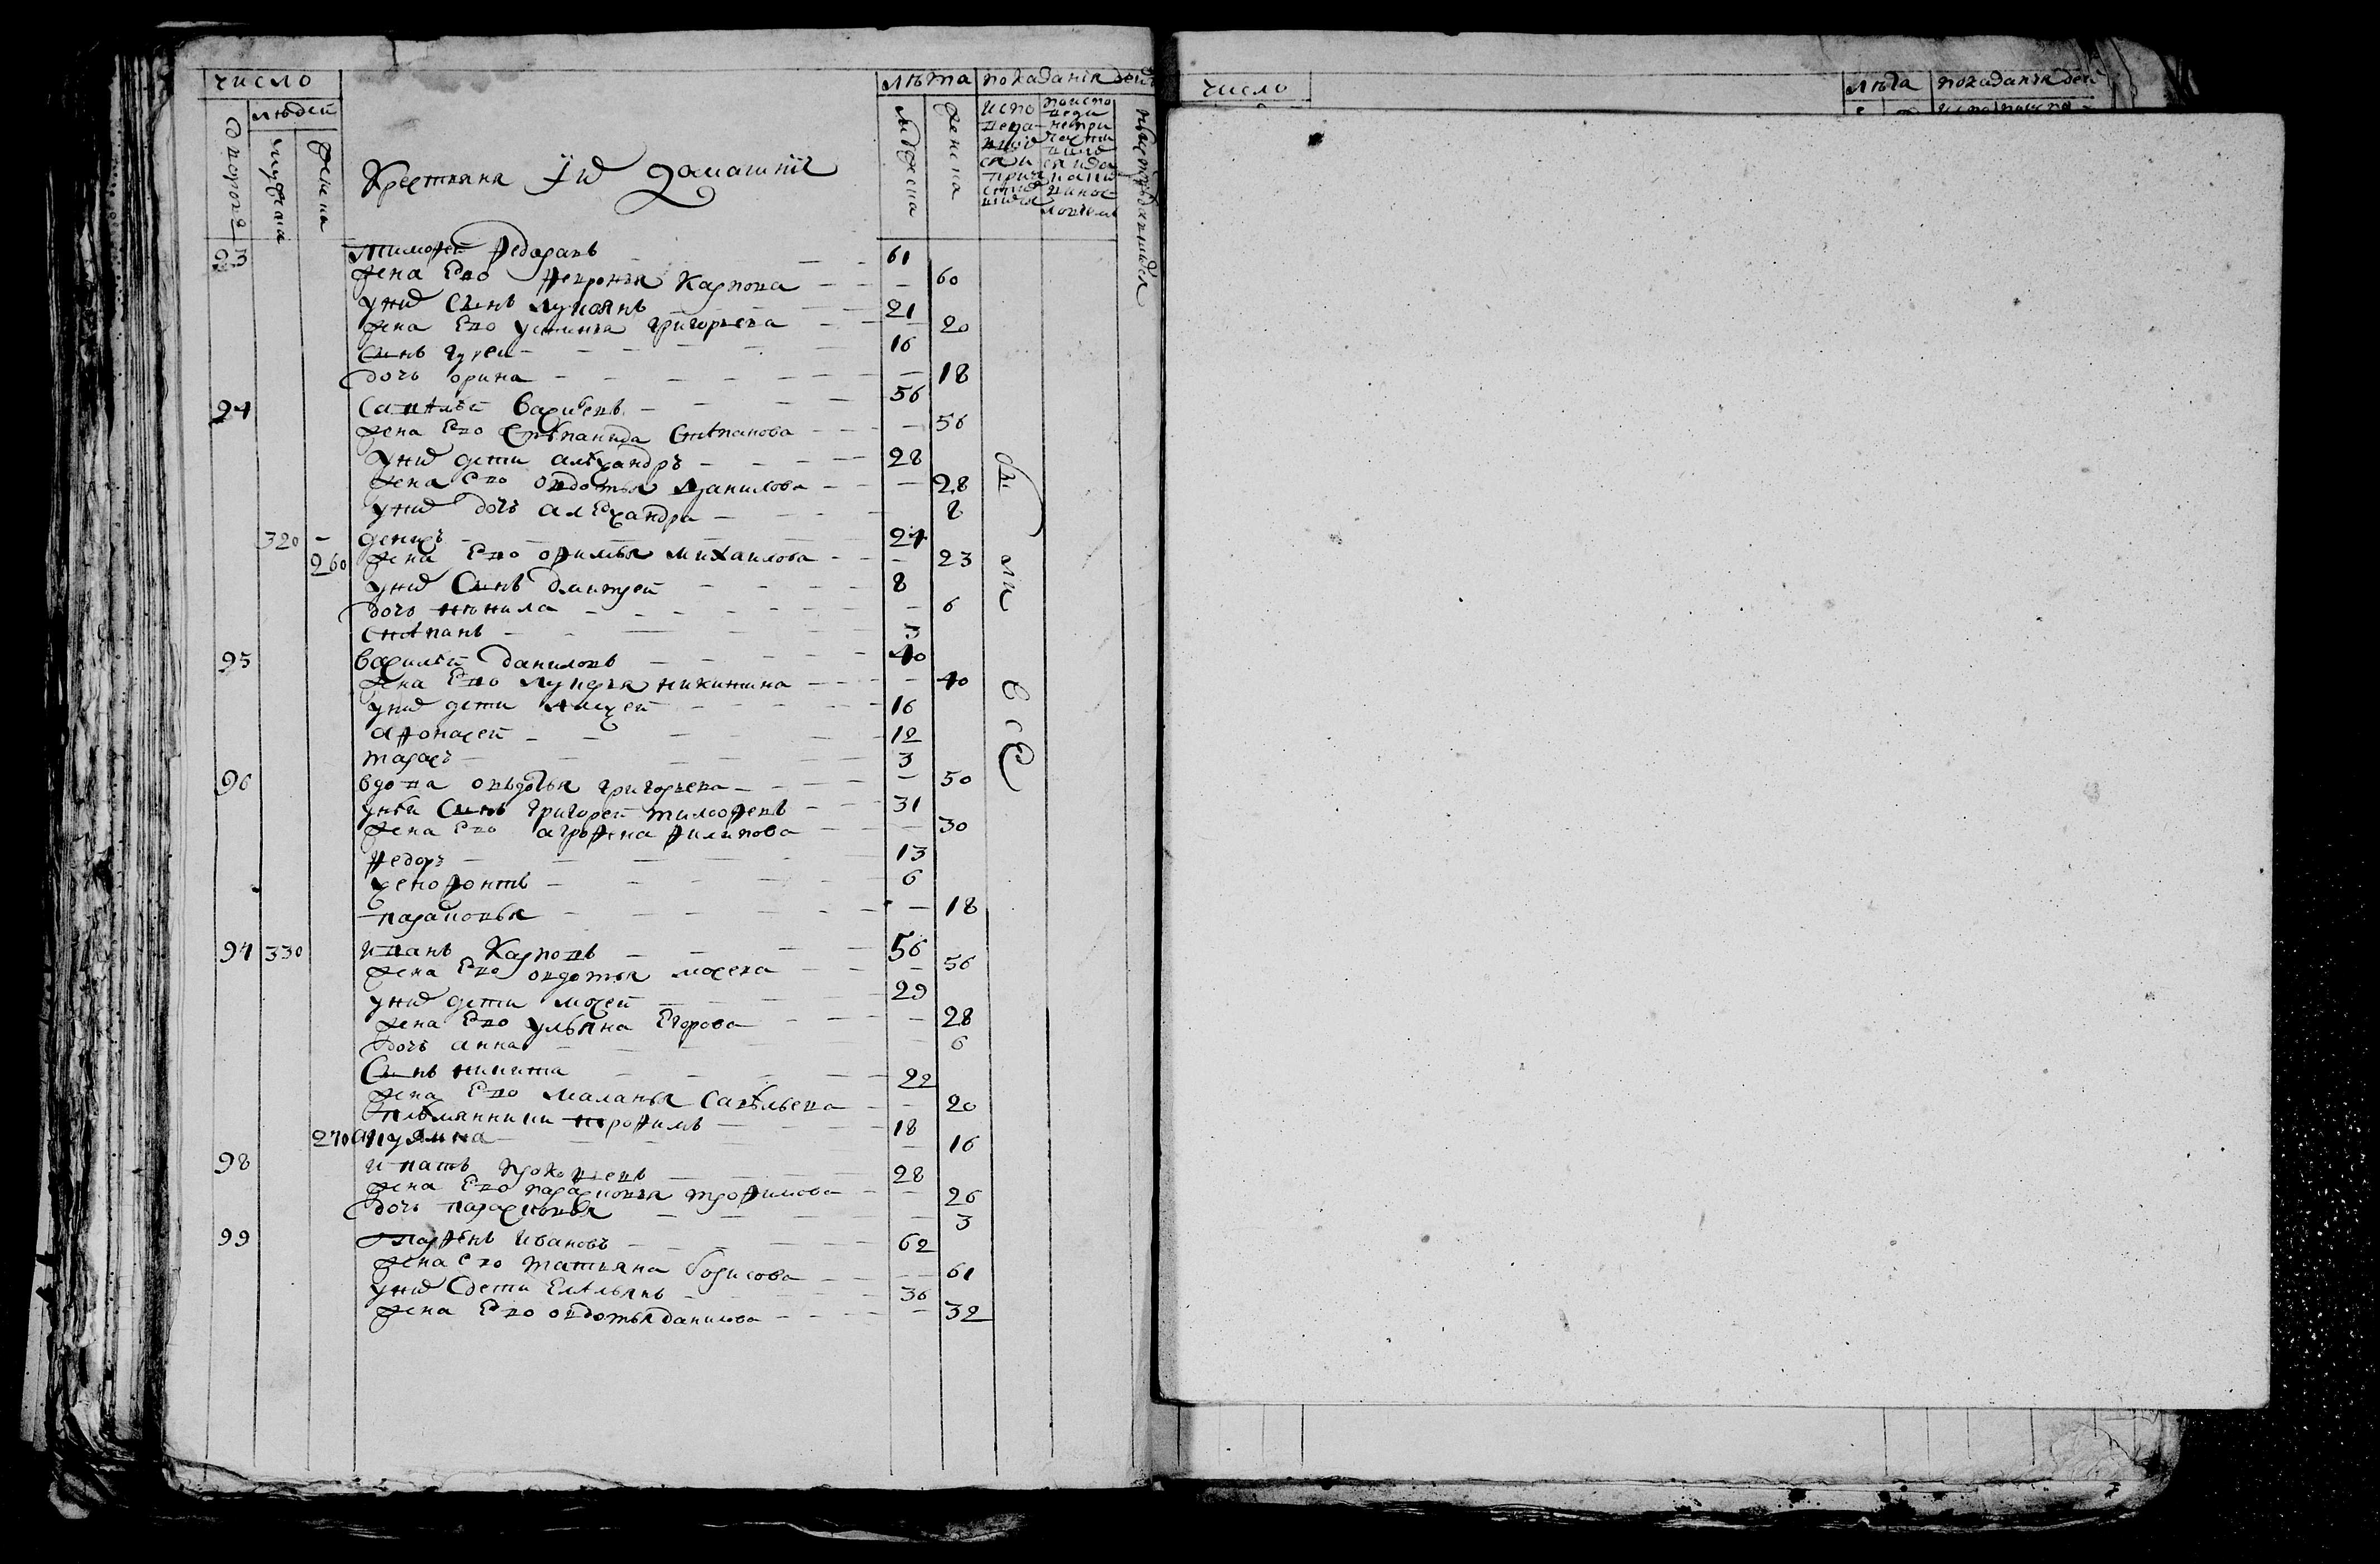 число
людей
дворовъ
мужеска
женска
Крестьяня и ихъ домашнiе
лѣта
показанiя
мужеска
женска
93 Тимофей Федоровъ 61
жена Ево Февронья Карпова 60
унихъ Сынъ Лукоянъ 21
жена Ево устинья григорьева 20
Сынъ гурей 16
дочь орина 18
94 Савелей Васильевъ 56
жена Ево Степанида Степанова 56
унихъ дети алеѯандръ 28
жена Ево овдотья Данилова 28
унихъ дочь алеѯандра 8
320 денисъ 24
260 жена Ево офимья михаилова 23
унихъ Сынъ дмитрей 8
дочь ненила 6
Степанъ 13
95 василей даниловъ 40
жена Ево Лукерья никитина 40
унихъ дети алеѯей 16
афонасей 12
тарасъ 3
96 вдова овдотья григорьева 50
уней Сынъ григорей тимофеевъ 31
жена Ево агрофена филипова 30
федоръ 13
ѯенофонтъ 6
парасковья 18
97 330 иванъ Карповъ 56
жена Ево овдотья мосеева 56
унихъ дети мосей 29
жена Ево ульяна Егорова 28
дочь анна 6
Сынъ никита 22
жена Ево маланья Савельева 20
племянники трофимъ 18
270 акулина 16
98 игнатъ прокопьевъ 28
жена Ево парасковья трофимова 26
дочь парасковья 3
99 парфенъ Ивановъ 62
жена Ево татьяна борисова 61
унихъ дети Емельянъ 36
жена Ево овдотья данилова 32
число
лѣта
показанiя